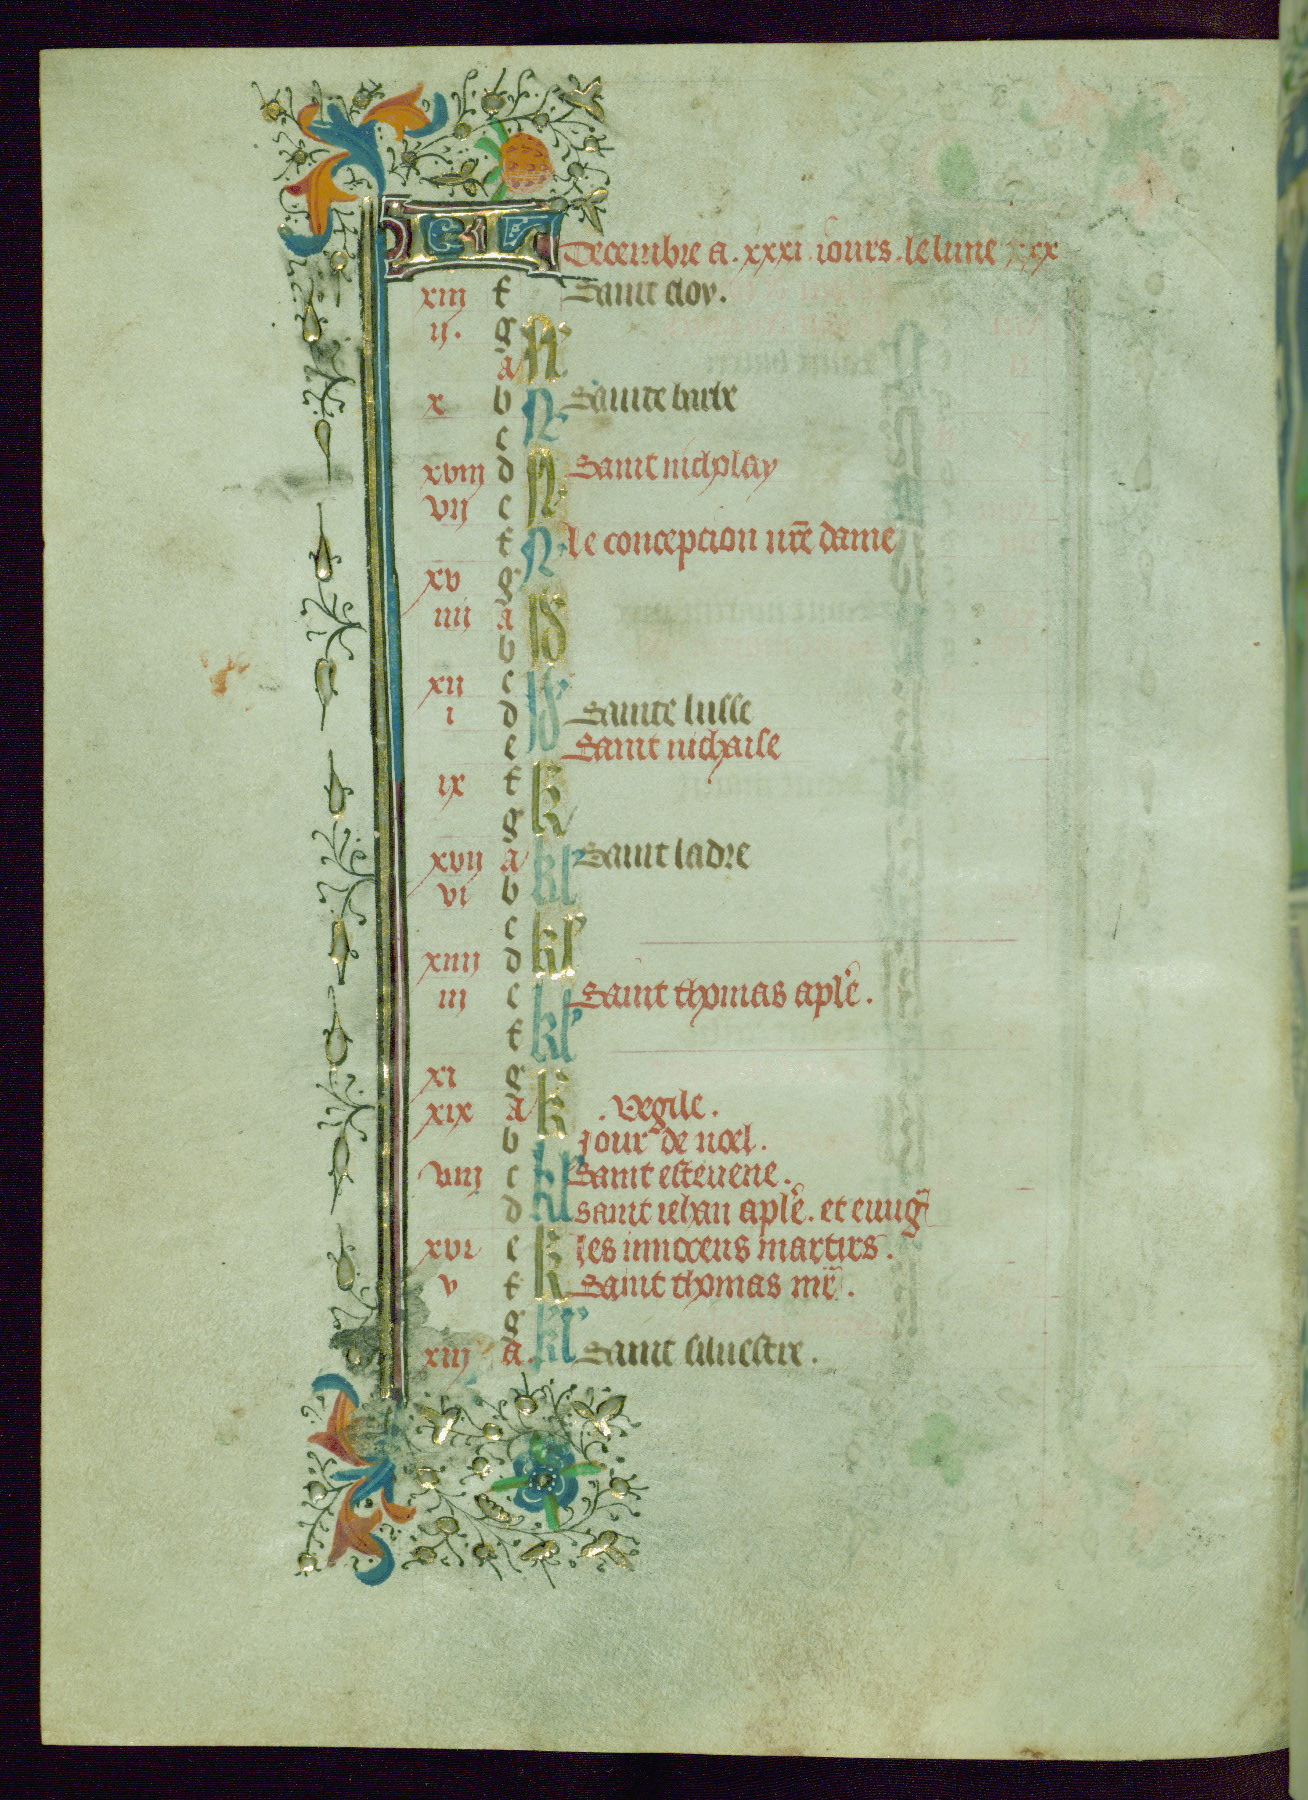 Decembre a. xxxi iours. le lune xxx
xiij f Saint eloy.
ij. g N
A
x b N Sainte barbe
c
xviij d N Saint nicholay
vij e
f N le concepcion nr̄e dame
xv g
iiij A Id
b
xij c Id
i d Sainte lusse
e Saint nichaise
ix f k
g
xvij A kl Saint ladre
vi b
c kl
xiiij d
iij e kl Saint thomas apl'e.
f
xi g k
xix A . vegile.
b jour de noel.
viij c kl Saint estevene.
d saint iehan apl'e. et euug
xvi e k les innocens martirs.
v f Saint thomas mr̄.
g kl
xiij A. Saint silvestre.